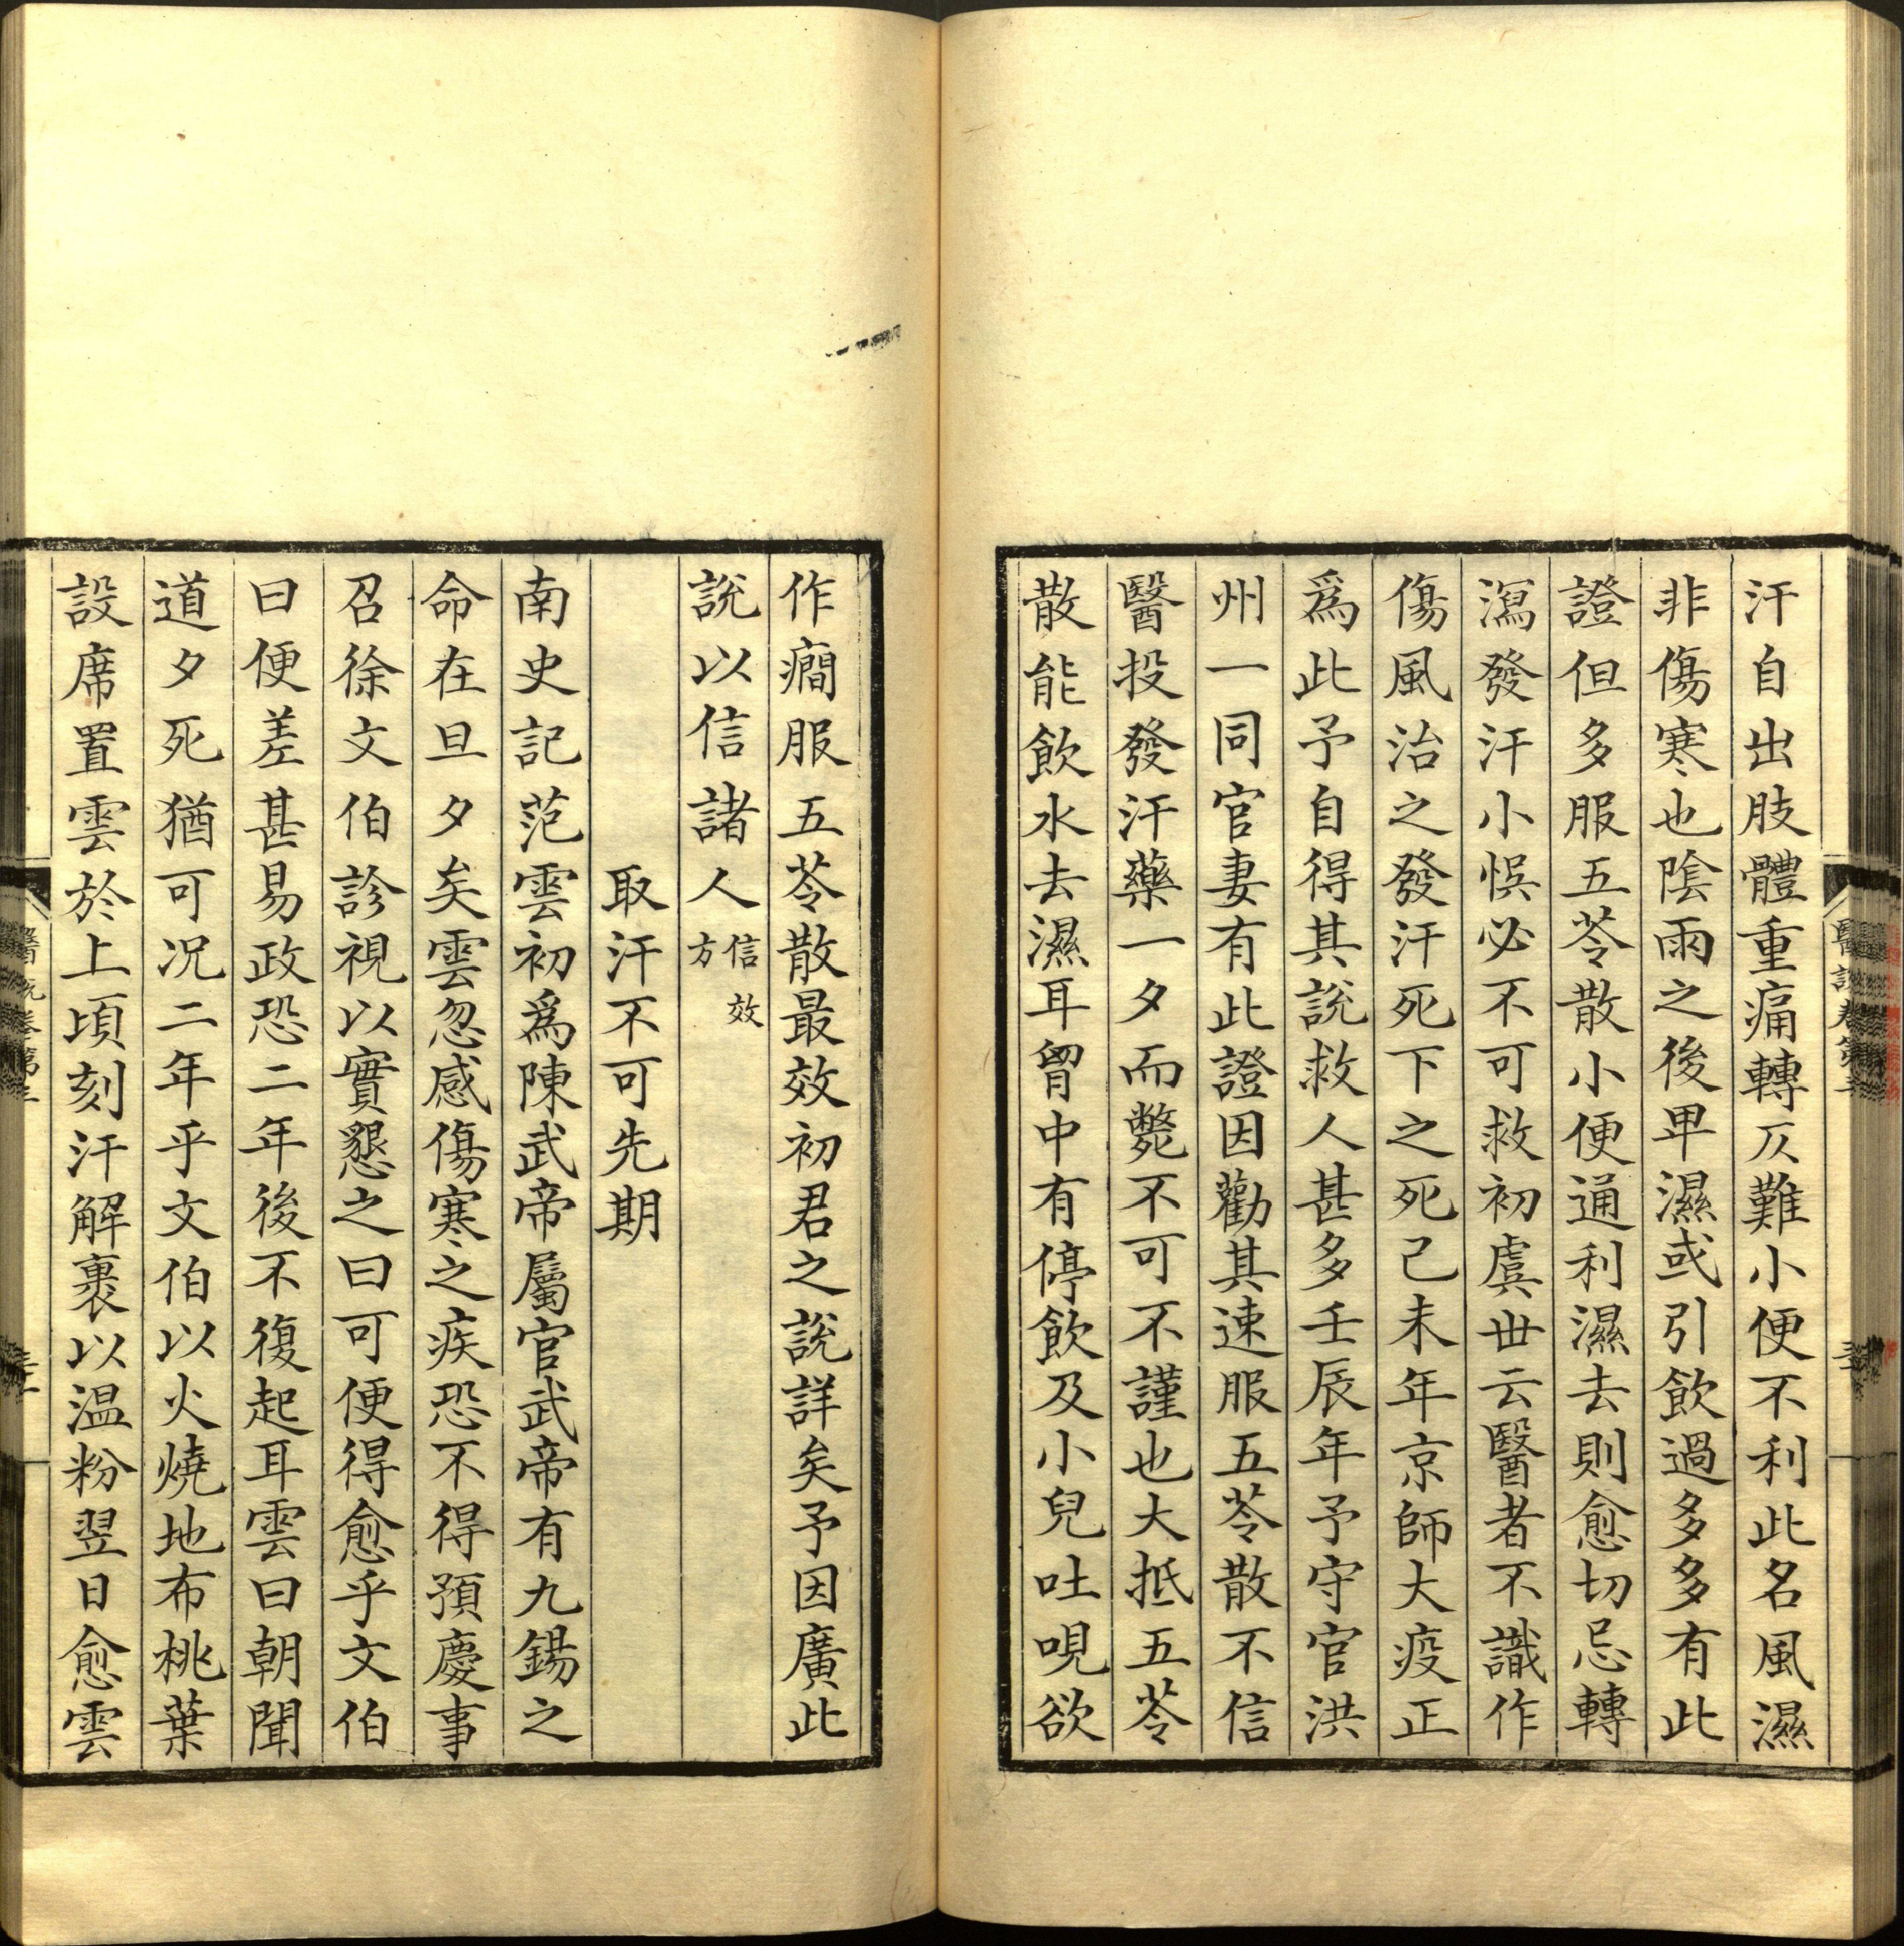 汗自出肢體重痛轉仄難小便不利此名風濕
非傷寒也陰雨之後卑濕或引飲過多多有此
證但多服五苓散小便通利濕去則愈切忌轉
瀉發汗小悞必不可救初虞世云醫者不識作
傷風治之發汗死下之死己未年京師大疫正
爲此予自得其說救人甚多壬辰年予守官洪
州一同官妻有此證因勸其速服五苓散不信
醫投發汗藥一夕而斃不可不謹也大抵五苓
散能飲水去濕耳胷中有停飲及小兒吐哯欲
作癎服五苓散最效初君之說詳矣予因廣此
說以信諸人信效方
取汗不可先期
南史記范雲初爲陳武帝屬官武帝有九錫之
命在旦夕矣雲忽感傷寒之疾恐不得預慶事
召徐文伯診視以實懇之曰可便得愈乎文伯
曰便差甚易政恐二年後不復起耳雲曰朝聞
道夕死猶可況二年乎文伯以火燒地布桃葉
設席置雲於上頃刻汗解裹以温粉翌日愈雲